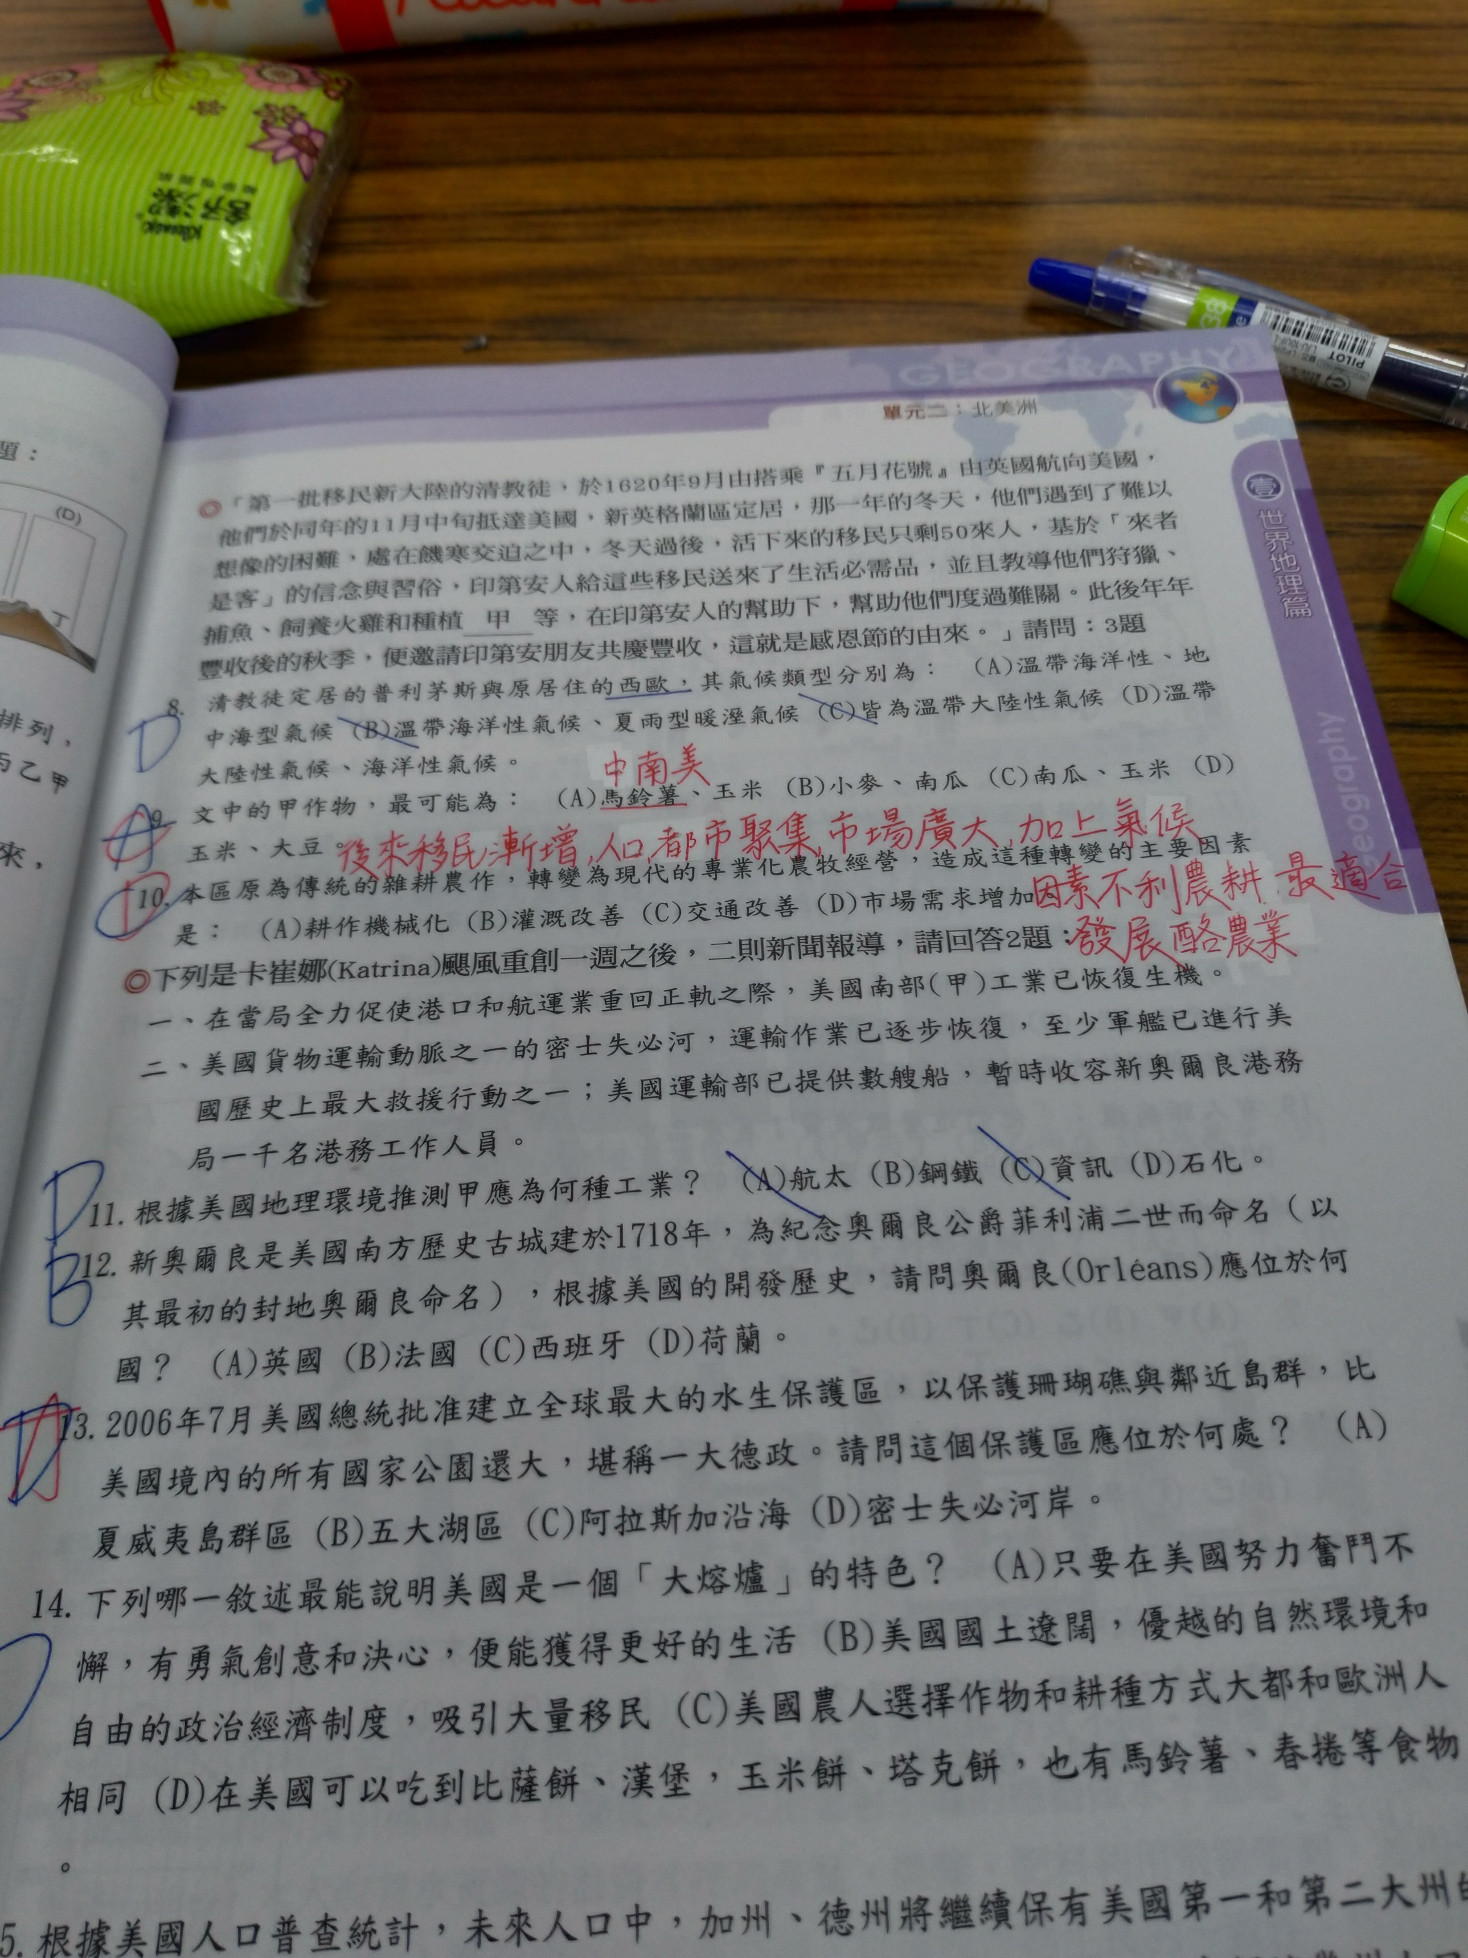 Kleenex
舒潔
PILOT
GEOGRAPHY
單元二：北美洲
題：
(D)
丁
排列，
丙乙甲
來，
壹
世界地理篇
Geography
◎「第一批移民新大陸的清教徒，於1620年9月由搭乘『五月花號』由英國航向美國，
他們於同年的11月中旬抵達美國，新英格蘭區定居，那一年的冬天，他們遇到了難以
想像的困難，處在饑寒交迫之中，冬天過後，活下來的移民只剩50來人，基於「來者
是客」的信念與習俗，印第安人給這些移民送來了生活必需品，並且教導他們狩獵、
捕魚、飼養火雞和種植 甲 等，在印第安人的幫助下，幫助他們度過難關。此後年年
豐收後的秋季，便邀請印第安朋友共慶豐收，這就是感恩節的由來。」請問：3題
D
8. 清教徒定居的普利茅斯與原居住的西歐，其氣候類型分別為： (A)溫帶海洋性、地
中海型氣候 (B)溫帶海洋性氣候、夏雨型暖溼氣候 (C)皆為溫帶大陸性氣候 (D)溫帶
大陸性氣候、海洋性氣候。
中南美
9. 文中的甲作物，最可能為： (A)馬鈴薯、玉米 (B)小麥、南瓜 (C)南瓜、玉米 (D)
玉米、大豆。
後來移民漸增,人口,都市聚集,市場廣大,加上氣候
因素不利農耕,最適合
發展酪農業
D
10. 本區原為傳統的雜耕農作，轉變為現代的專業化農牧經營，造成這種轉變的主要因素
是： (A)耕作機械化 (B)灌溉改善 (C)交通改善 (D)市場需求增加
◎下列是卡崔娜(Katrina)颶風重創一週之後，二則新聞報導，請回答2題：
一、在當局全力促使港口和航運業重回正軌之際，美國南部(甲)工業已恢復生機。
二、美國貨物運輸動脈之一的密士失必河，運輸作業已逐步恢復，至少軍艦已進行美
國歷史上最大救援行動之一；美國運輸部已提供數艘船，暫時收容新奧爾良港務
局一千名港務工作人員。
D
11. 根據美國地理環境推測甲應為何種工業？ (A)航太 (B)鋼鐵 (C)資訊 (D)石化。
B
12. 新奧爾良是美國南方歷史古城建於1718年，為紀念奧爾良公爵菲利浦二世而命名（以
其最初的封地奧爾良命名），根據美國的開發歷史，請問奧爾良(Orléans)應位於何
國？ (A)英國 (B)法國 (C)西班牙 (D)荷蘭。
13. 2006年7月美國總統批准建立全球最大的水生保護區，以保護珊瑚礁與鄰近島群，比
美國境內的所有國家公園還大，堪稱一大德政。請問這個保護區應位於何處？ (A)
夏威夷島群區 (B)五大湖區 (C)阿拉斯加沿海 (D)密士失必河岸。
14. 下列哪一敘述最能說明美國是一個「大熔爐」的特色？ (A)只要在美國努力奮鬥不
懈，有勇氣創意和決心，便能獲得更好的生活 (B)美國國土遼闊，優越的自然環境和
自由的政治經濟制度，吸引大量移民 (C)美國農人選擇作物和耕種方式大都和歐洲人
相同 (D)在美國可以吃到比薩餅、漢堡，玉米餅、塔克餅，也有馬鈴薯、春捲等食物
。
5. 根據美國人口普查統計，未來人口中，加州、德州將繼續保有美國第一和第二大州的